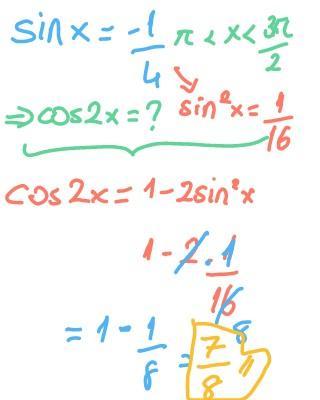 sin x = -1/4 π < x < 3π/2
⇒ cos2x = ? sin²x = 1/16
cos2x = 1 - 2sin²x
1 - 2 . 1/16 8
= 1 - 1/8 = 7/8 //